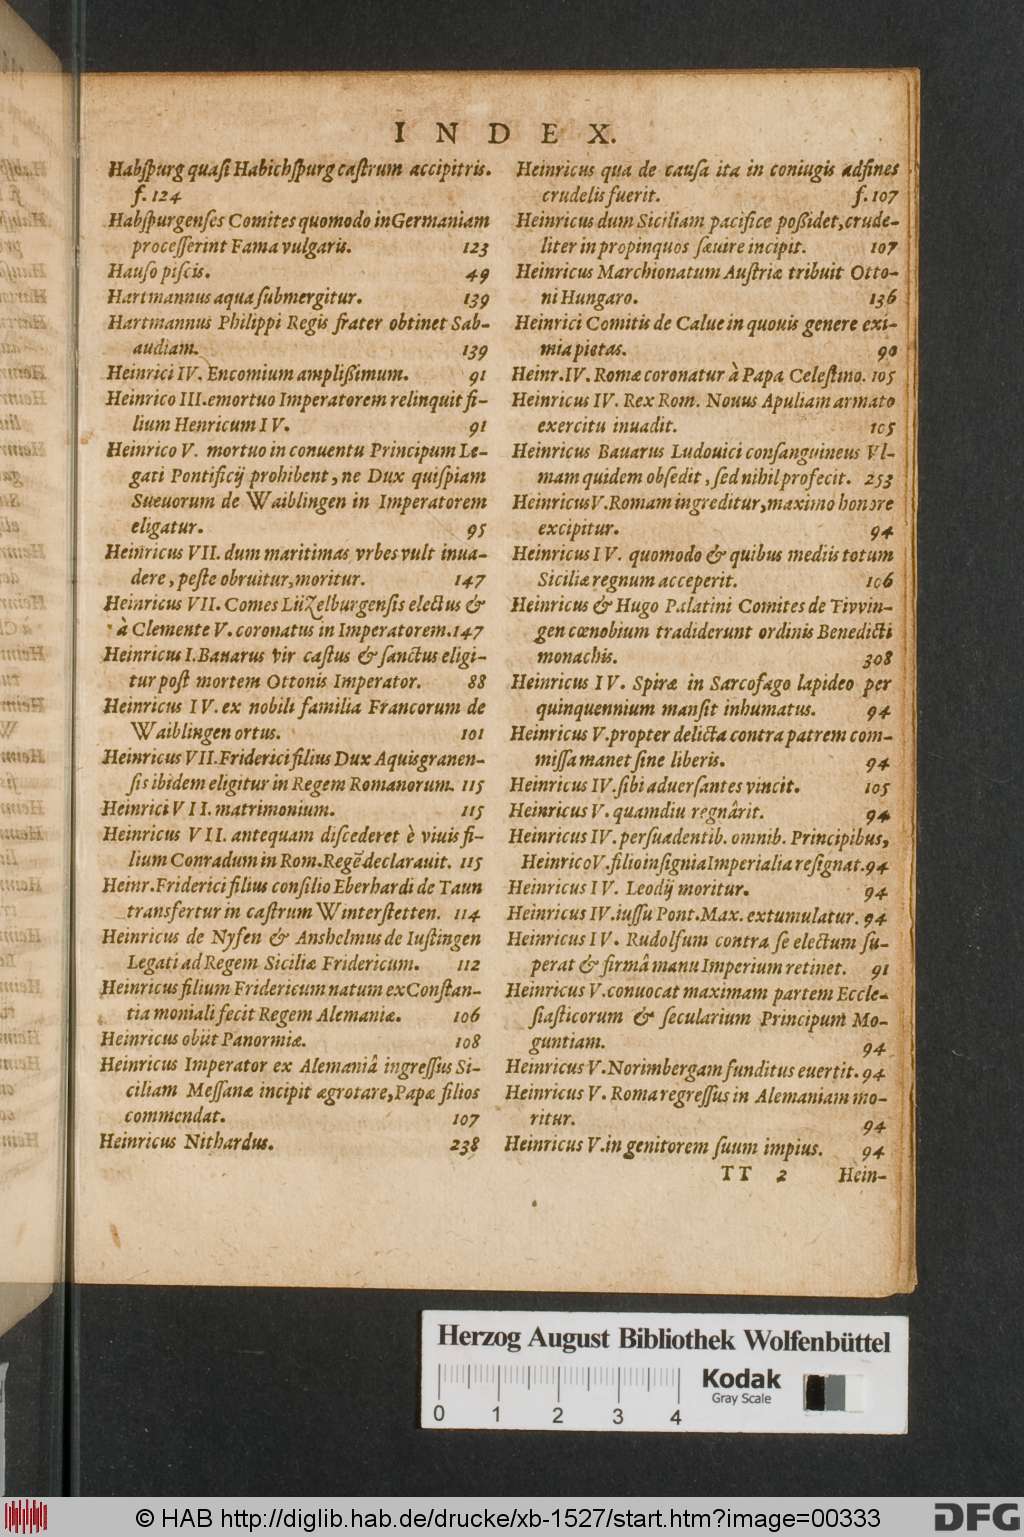 INDEX.
Habſpurg quaſi Habichſpurg caſtrum accipitris.
f. 124
Habſpurgenſes Comites quomodo in Germaniam
proceſſerint Fama vulgaris. 123
Hauſo piſcis. 49
Hartmannus aqua ſubmergitur. 139
Hartmannus Philippi Regis frater obtinet Sab-
audiam. 139
Heinrici IV. Encomium ampliſſimum. 91
Heinrico III. emortuo Imperatorem relinquit fi-
lium Henricum IV. 91
Heinrico V. mortuo in conuentu Principum Le-
gati Pontificij prohibent, ne Dux quiſpiam
Sueuorum de Waiblingen in Imperatorem
eligatur. 95
Heinricus VII. dum maritimas vrbes vult inua-
dere, peſte obruitur, moritur. 147
Heinricus VII. Comes Lüzelburgenſis electus &
à Clemente V. coronatus in Imperatorem. 147
Heinricus I. Bauarus vir caſtus & ſanctus eligi-
tur poſt mortem Ottonis Imperator. 88
Heinricus IV. ex nobili familia Francorum de
Waiblingen ortus. 101
Heinricus VII. Friderici filius Dux Aquisgranen-
ſis ibidem eligitur in Regem Romanorum. 115
Heinrici VII. matrimonium. 115
Heinricus VII. antequam diſcederet è viuis fi-
lium Conradum in Rom. Regē declarauit. 115
Heinr. Friderici filius conſilio Eberhardi de Taun
transfertur in caſtrum Winterſtetten. 114
Heinricus de Nyfen & Anshelmus de Iuſtingen
Legati ad Regem Siciliæ Fridericum. 112
Heinricus filium Fridericum natum ex Conſtan-
tia moniali fecit Regem Alemaniæ. 106
Heinricus obiit Panormiæ. 108
Heinricus Imperator ex Alemaniâ ingreſſus Si-
ciliam Meſſanæ incipit ægrotare, Papæ filios
commendat. 107
Heinricus Nithardus. 238
Heinricus qua de cauſa ita in coniugis adfines
crudelis fuerit. f. 107
Heinricus dum Siciliam pacifice poßidet, crude-
liter in propinquos ſæuire incipit. 107
Heinricus Marchionatum Auſtriæ tribuit Otto-
ni Hungaro. 136
Heinrici Comitis de Calue in quouis genere exi-
mia pietas. 90
Heinr. IV. Romæ coronatur à Papa Celeſtino. 105
Heinricus IV. Rex Rom. Nouus Apuliam armato
exercitu inuadit. 105
Heinricus Bauarus Ludouici conſanguineus Vl-
mam quidem obſedit, ſed nihil profecit. 253
Heinricus V. Romam ingreditur, maximo honore
excipitur. 94
Heinricus IV. quomodo & quibus mediis totum
Siciliæ regnum acceperit. 106
Heinricus & Hugo Palatini Comites de Tivvin-
gen cœnobium tradiderunt ordinis Benedicti
monachis. 308
Heinricus IV. Spiræ in Sarcofago lapideo per
quinquennium manſit inhumatus. 94
Heinricus V. propter delicta contra patrem com-
miſſa manet ſine liberis. 94
Heinricus IV. ſibi aduerſantes vincit. 105
Heinricus V. quamdiu regnârit. 94
Heinricus IV. perſuadentib. omnib. Principibus,
Heinrico V. filio inſignia Imperialia reſignat. 94
Heinricus IV. Leodij moritur. 94
Heinricus IV. iuſſu Pont. Max. extumulatur. 94
Heinricus IV. Rudolfum contra ſe electum ſu-
perat & firmâ manu Imperium retinet. 91
Heinricus V. conuocat maximam partem Eccle-
ſiaſticorum & ſecularium Principum Mo-
guntiam. 94
Heinricus V. Norimbergam funditus euertit. 94
Heinricus V. Roma regreſſus in Alemaniam mo-
ritur. 94
Heinricus V. in genitorem ſuum impius. 94
TT 2 Hein-
Herzog August Bibliothek Wolfenbüttel
Kodak
Gray Scale
0 1 2 3 4
© HAB http://diglib.hab.de/drucke/xb-1527/start.htm?image=00333
DFG